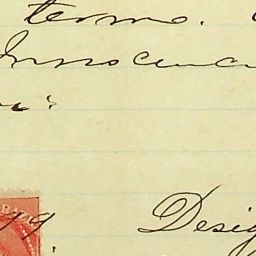 termo.
Innocenc
99 Desig